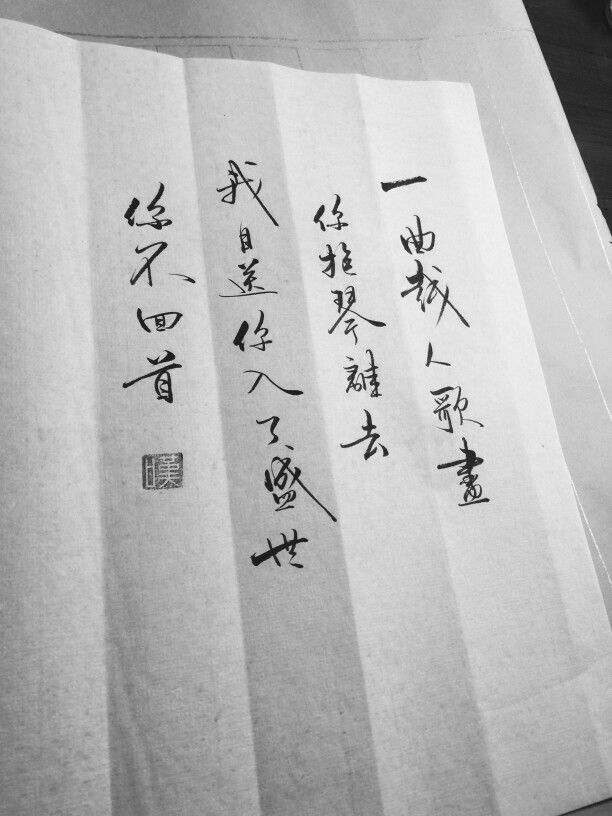 一曲越人歌畫
你抱琴離去
我目送你入了盛世
你不回首